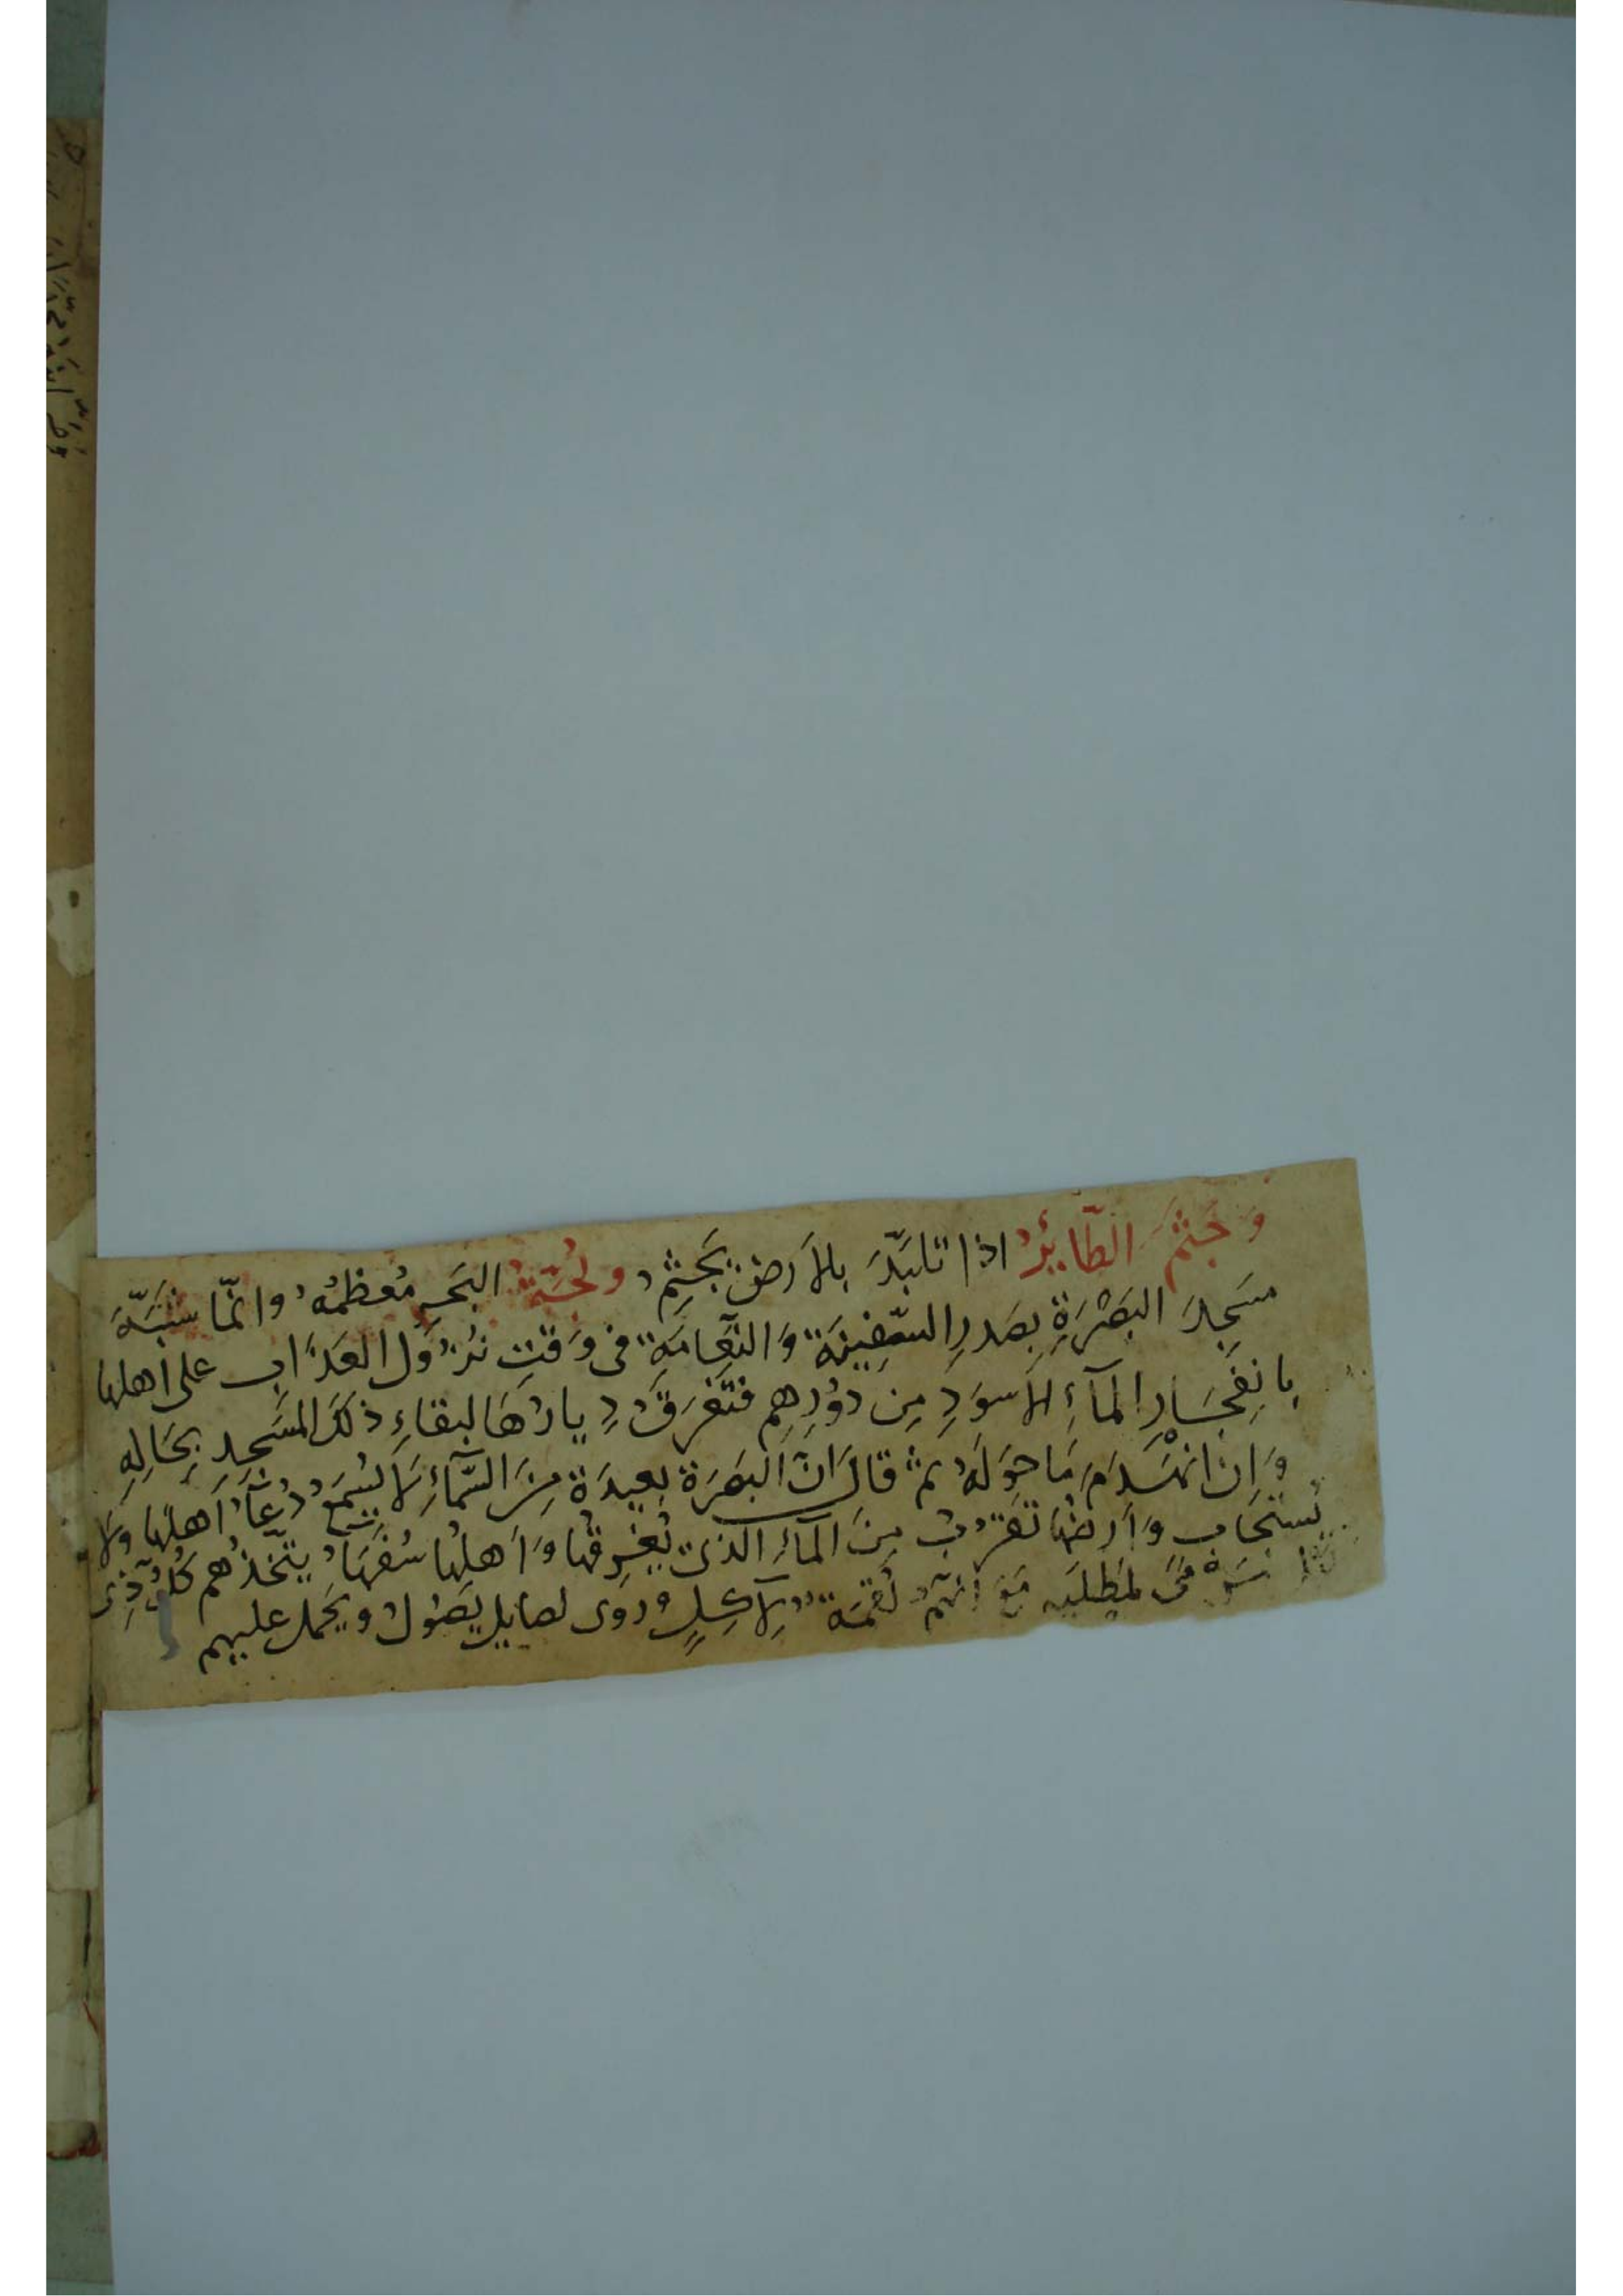 وَجَثَمَ الطَّائِرُ اذا تَلَبَّدَ بالأرضِ يَجثِمُ ولُجّةُ البَحرِ مُعظمُهُ وانّما شَبَّهَ
مسَجِدَ البَصْرَةِ بِصَدرِ السَّفِينَةِ وَالنَّعَامَةِ فى وَقتِ نُزُولِ العَذَابِ على اهلها
بانفِجَارِ المآءِ الأسوَدِ مِن دُورِهِم فتَغرَقُ دِيارُهَا لبقاءِ ذلكَ المسَجدِ بِحَالِهِ
وَاِن انهَدَمَ مَا حَولَهُ ثمّ قالَ انّ البَصَرَة بعيدَة مِنَ السَّمآءِ لَا يُسْمَعُ دُعَآءُ اَهلها ولا
يُستَجَاب وَارضُهَا تقرُبُ مِنَ المآءِ الذى يُغرِقُها وَاَهلها سُفَهَاءُ يتّخذُهم كُلُّ ذِى
لمَطلَبِهِ مَعَ انّهُم لُقمَةٌ لِآكِلٍ وروى لصايلٍ يَصُولُ ويَحمل عليهم